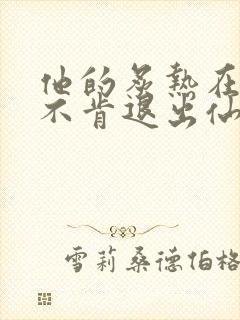 他的炙热在
不肯退出仙
雪莉桑德伯格